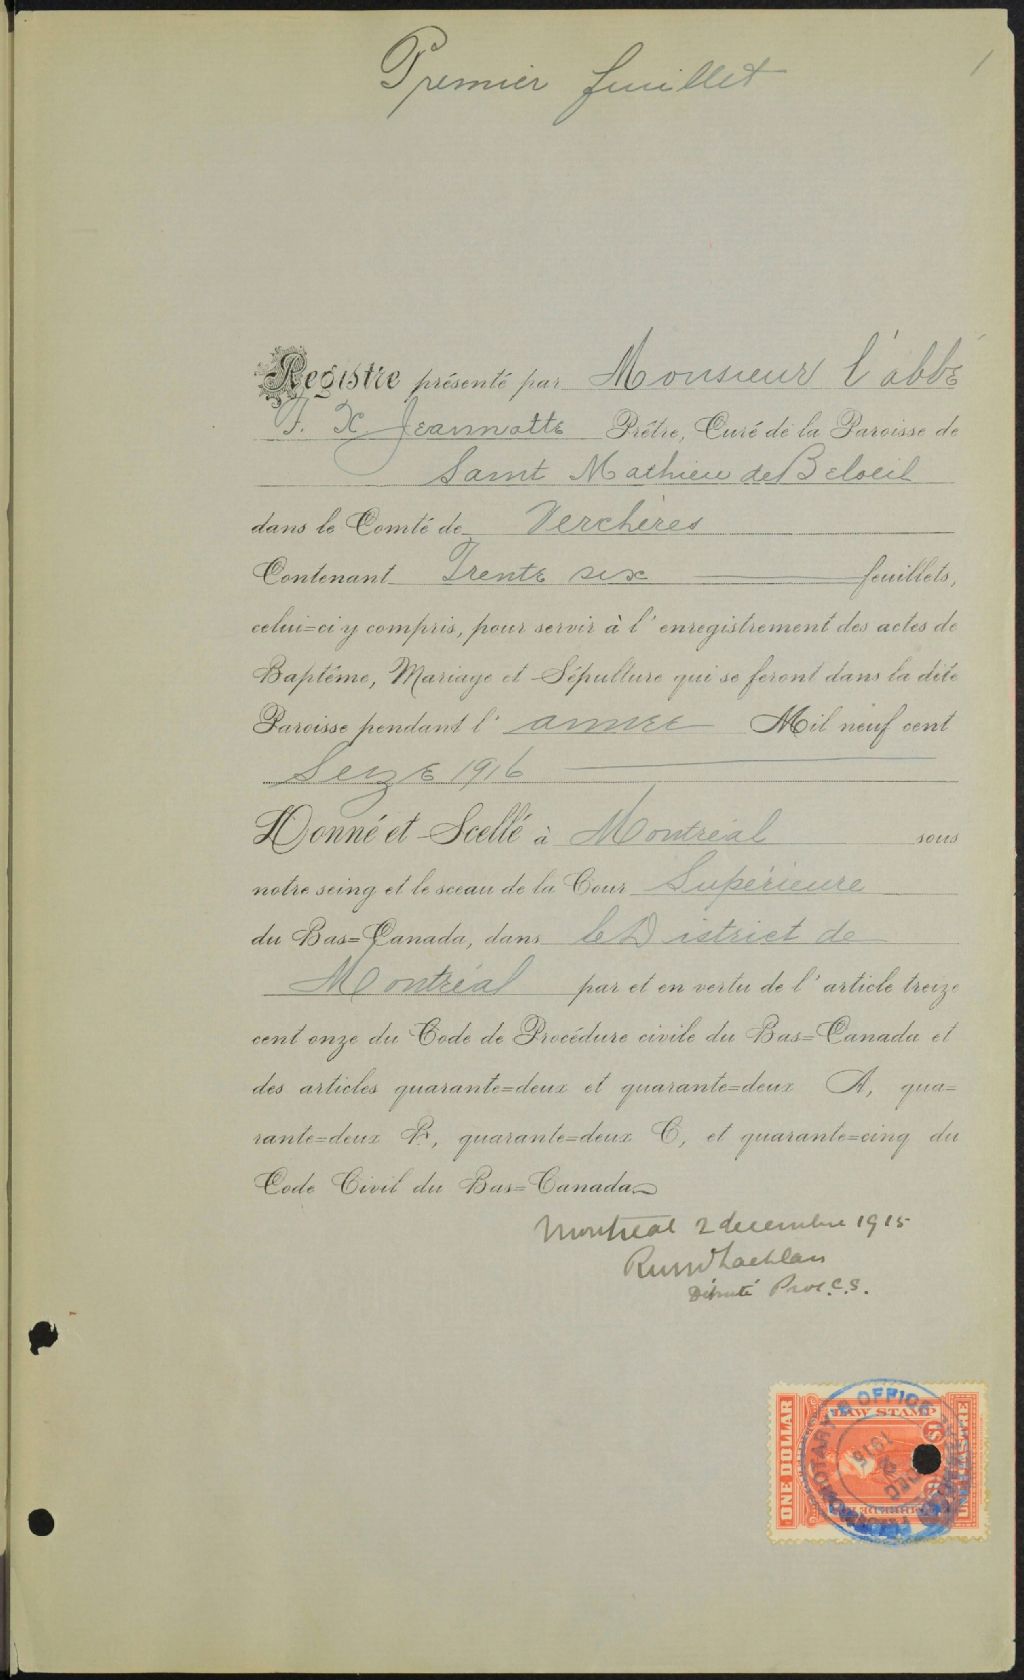 Premier feuillet
1
Registre présenté par Monsieur l'abbé
F. X Jeannotte Prêtre, Curé de la Paroisse de
Saint Mathieu de Beloeil
dans le Comté de Verchères
Contenant Trente six feuillets,
celui=ci y compris, pour servir à l'enregistrement des actes de
Baptême, Mariage et Sépulture qui se feront dans la dite
Paroisse pendant l'année Mil neuf cent
Seize 1916
Donné et Scellé à Montréal sous
notre seing et le sceau de la Cour Supérieure
du Bas=Canada, dans le District de
Montréal par et en vertu de l'article treize
cent onze du Code de Procédure civile du Bas=Canada et
des articles quarante=deux et quarante=deux A, qua=
rante=deux B, quarante=deux C, et quarante=cinq du
Code Civil du Bas=Canada
Montreal 2 decembre 1915
Député Prot. C. S.
ONE DOLLAR
LAW STAMP
UNE PIASTRE
$1
OFFICE
DEC 2 1915